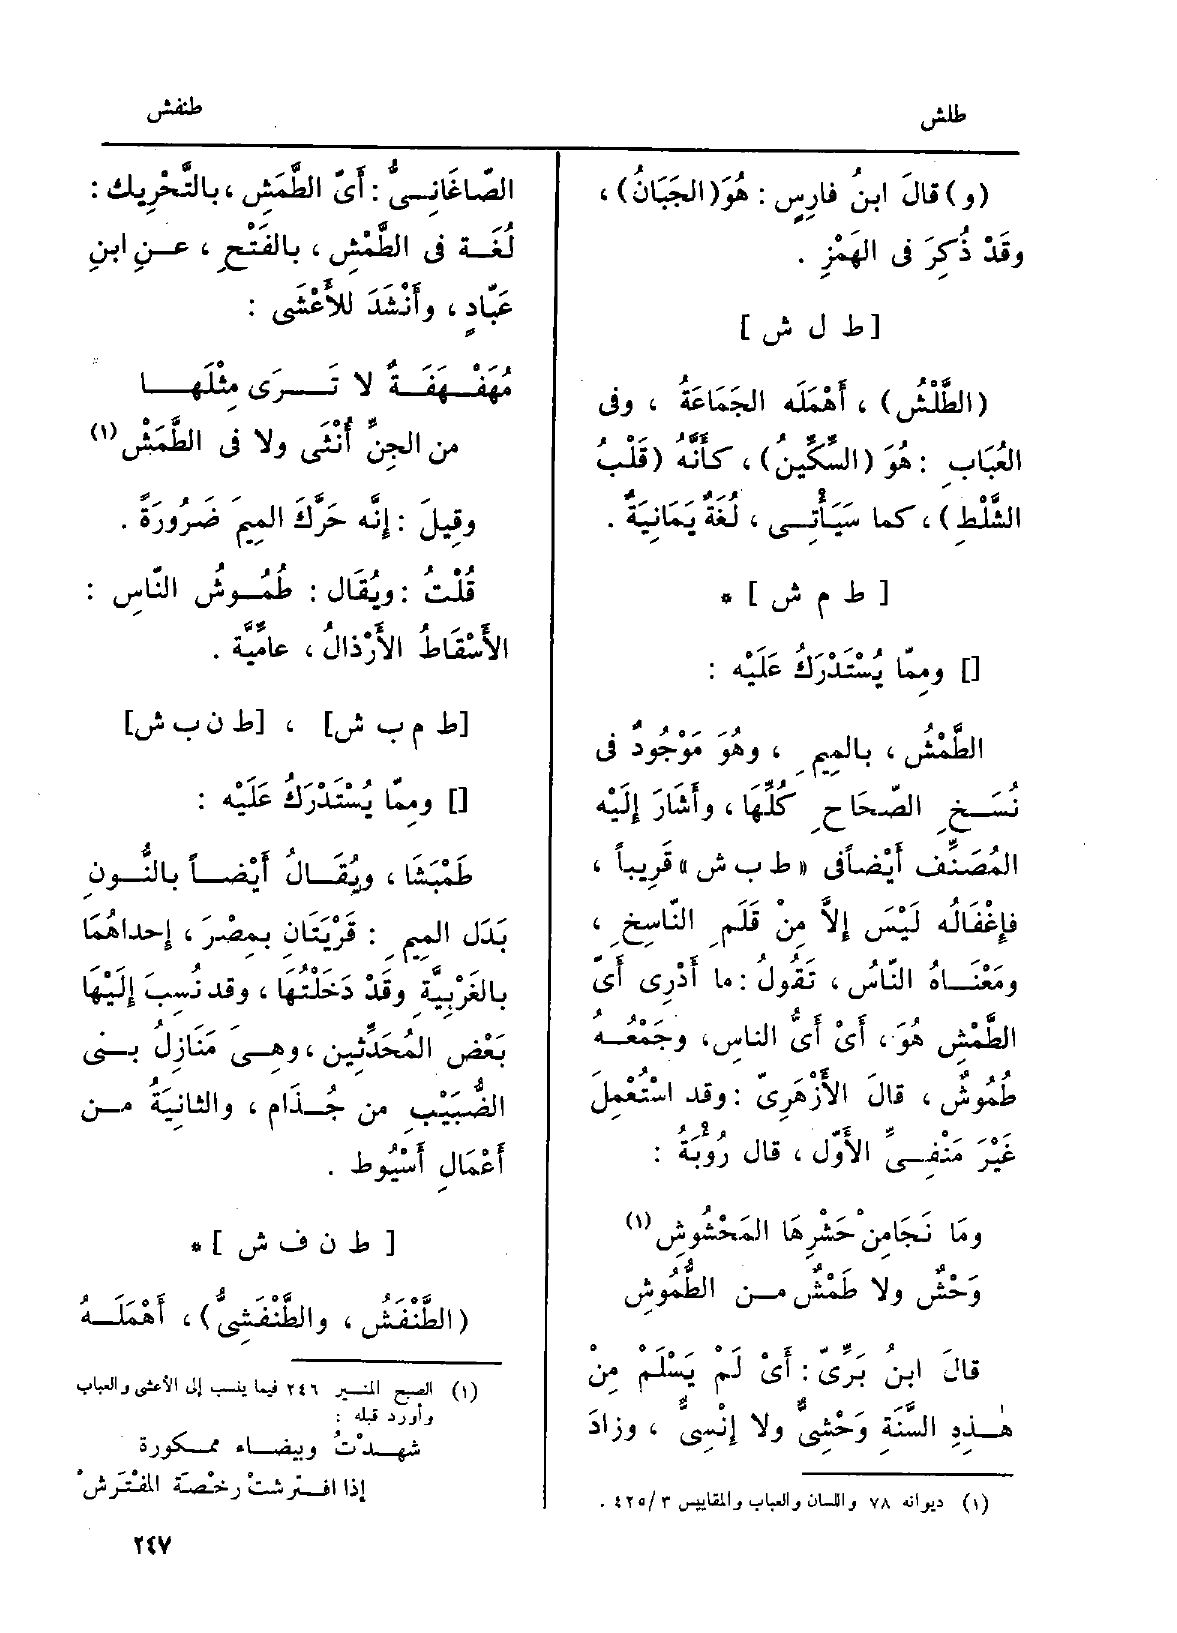 طلش
طنفش
(و) قالَ ابنُ فارِسٍ : هُوَ (الجَبَانُ) ،
وقَدْ ذُكِرَ فى الهَمْزِ .
[ ط ل ش ]
(الطَّلْشُ) ، أَهْمَلَه الجَمَاعَةُ ، وفى
العُبَابِ : هُوَ (السِّكِّينُ) ، كأَنَّهُ (قَلْبُ
الشَّلْطِ) ، كما سَيَأْتِى ، لُغَةٌ يَمَانِيَةٌ .
[ ط م ش ] *
[] ومِمّا يُسْتَدْرَكُ عَلَيْه :
الطَّمْشُ ، بالمِيمِ ، وهُوَ مَوْجُودٌ فى
نُسَخِ الصّحَاحِ كُلِّهَا ، وأَشَارَ إِلَيْه
المُصَنِّف أَيْضاً فى « ط ب ش » قَرِيباً ،
فإِغْفَالُه لَيْسَ إِلاَّ مِنْ قَلَمِ النّاسِخِ ،
ومَعْنَاهُ النّاسُ ، تَقُولُ : ما أَدْرِى أَىّ
الطَّمْشِ هُوَ ، أَىْ أَىُّ الناسِ ، وجَمْعُهُ
طُمُوشٌ ، قالَ الأَزْهَرِىّ : وقد اسْتُعْمِلَ
غَيْرَ مَنْفِىِّ الأَوّلِ ، قال رُؤْبَةُ :
ومَا نَجَا مِنْ حَشْرِهَا المَحْشُوشِ (١)
وَحْشٌ ولا طَمْشٌ مِن الطُّمُوشِ
قالَ ابنُ بَرِّىّ : أَىْ لَمْ يَسْلَمْ مِنْ
هٰذِهِ السَّنَةِ وَحْشِىٌّ ولا إِنْسِىٌّ ، وزادَ
(١) ديوانه ٧٨ واللسان والعباب والمقاييس ٣/ ٤٢٥ .
الصّاغَانِىُّ : أَىّ الطَّمَشِ ، بالتَّحْرِيك :
لُغَة فى الطَّمْشِ ، بالفَتْحِ ، عن ابنِ
عَبّادٍ ، وأَنْشَدَ للأَعْشَى :
مُهَفْهَفَةٌ لا تَرَى مِثْلَها
من الجِنِّ أُنْثَى ولا فى الطَّمَشْ (١)
وقِيلَ : إِنَّه حَرَّكَ المِيمَ ضَرُورَةً .
قُلْتُ : ويُقَال : طُمُوشُ النّاسِ :
الأَسْقَاطُ الأَرْذالُ ، عامِّيَّة .
[ط م ب ش] ، [ط ن ب ش]
[] ومِمّا يُسْتَدْرَكُ عَلَيْه :
طَمْبَشَا ، ويُقَالُ أَيْضاً بالنُّونِ
بَدَل المِيمِ : قَرْيَتَانِ بمِصْرَ ، إِحداهُمَا
بالغَرْبِيَّةِ وقَدْ دَخَلْتُهَا ، وقد نُسِبَ إِلَيْهَا
بَعْض المُحَدِّثِين ، وهِىَ مَنَازِلُ بنى
الضُّبَيْبِ من جُذَام ، والثانِيَةُ من
أَعْمَالِ أَسْيُوط .
[ ط ن ف ش ] *
(الطَّنْفَشُ ، والطَّنْفَشِىُّ) ، أَهْمَلَهُ
(١) الصبح المنير ٢٤٦ فيما ينسب إلى الأعشى والعباب
وأورد قبله :
شهدْتُ وبيضاء ممكورة
إذا افترشتْ رخْصة المفْتَرشْ
٢٤٧